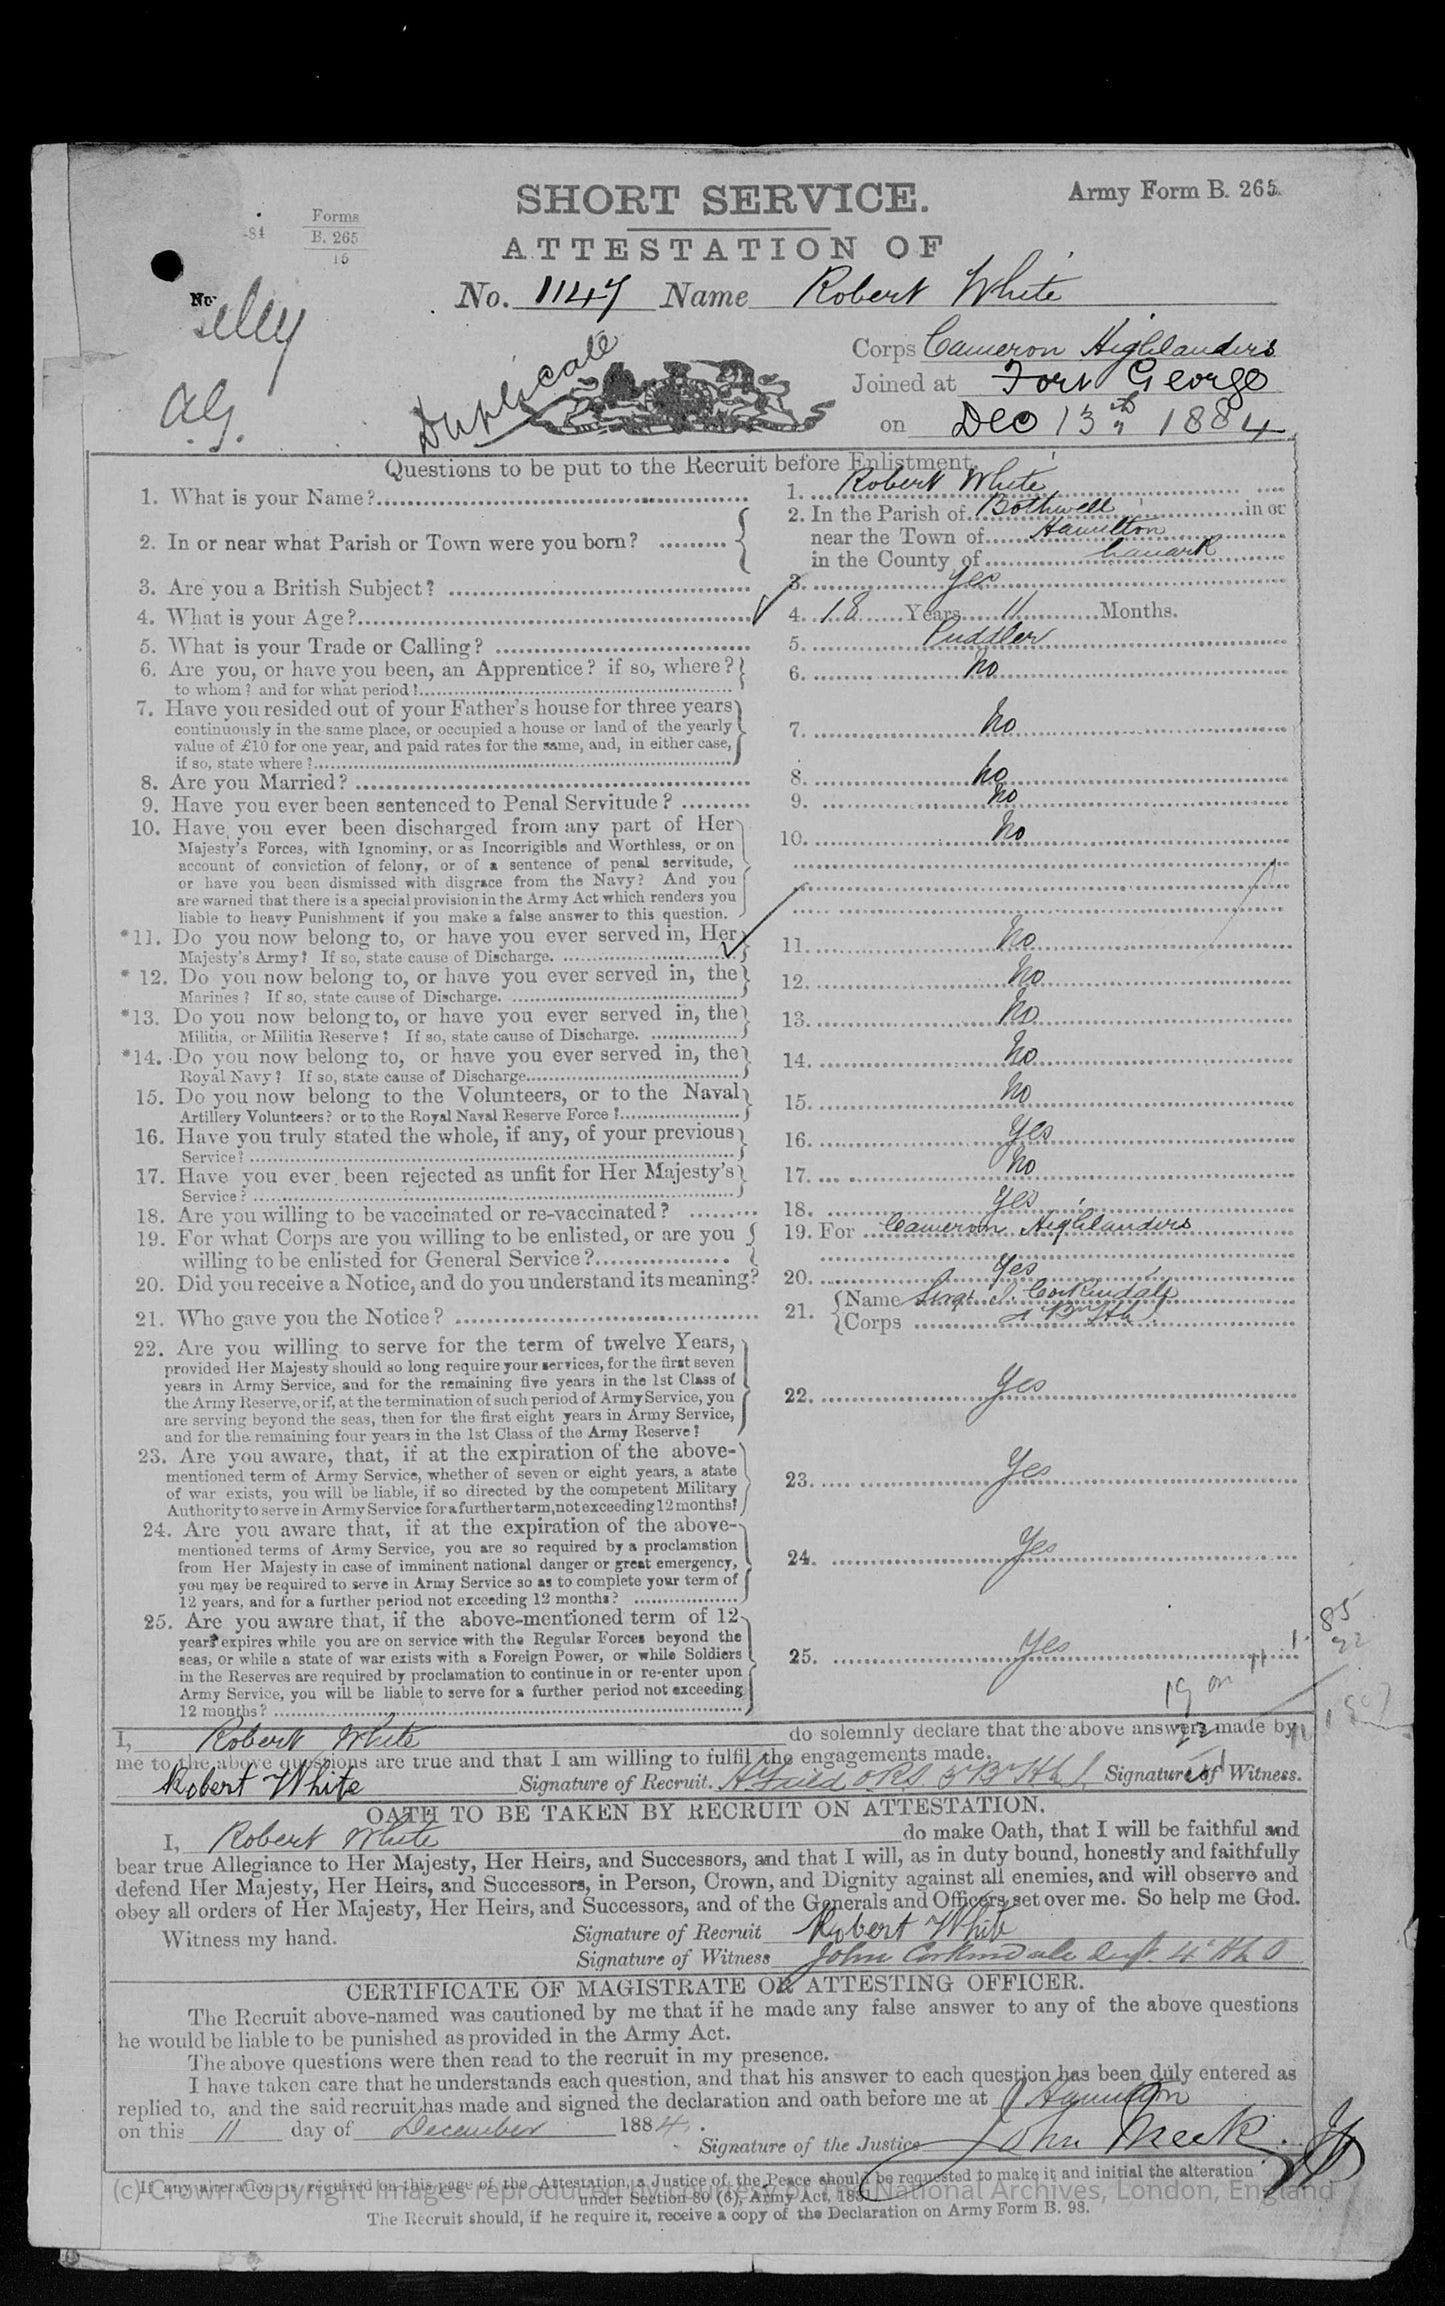 SHORT SERVICE.
Army Form B. 265.
-84
Forms
B. 265
15
ATTESTATION OF
No. 1147 Name Robert White
No.
A.G.
Duplicate
Corps Cameron Highlanders
Joined at Fort George
on Dec 13th 1884
Questions to be put to the Recruit before Enlistment.
1. What is your Name? 1. Robert White
2. In or near what Parish or Town were you born? 2. In the Parish of Bothwell in or
near the Town of Hamilton
in the County of Lanark
3. Are you a British Subject? 3. Yes
4. What is your Age? 4. 18 Years 11 Months.
5. What is your Trade or Calling? 5. Puddler
6. Are you, or have you been, an Apprentice? if so, where? 6. No
to whom? and for what period?
7. Have you resided out of your Father's house for three years
continuously in the same place, or occupied a house or land of the yearly 7. No
value of £10 for one year, and paid rates for the same, and, in either case,
if so, state where?
8. Are you Married? 8. No
9. Have you ever been sentenced to Penal Servitude? 9. No
10. Have you ever been discharged from any part of Her 10. No
Majesty's Forces, with Ignominy, or as Incorrigible and Worthless, or on
account of conviction of felony, or of a sentence of penal servitude,
or have you been dismissed with disgrace from the Navy? And you
are warned that there is a special provision in the Army Act which renders you
liable to heavy Punishment if you make a false answer to this question.
*11. Do you now belong to, or have you ever served in, Her 11. No
Majesty's Army? If so, state cause of Discharge.
*12. Do you now belong to, or have you ever served in, the 12. No
Marines? If so, state cause of Discharge.
*13. Do you now belong to, or have you ever served in, the 13. No
Militia, or Militia Reserve? If so, state cause of Discharge.
*14. Do you now belong to, or have you ever served in, the 14. No
Royal Navy? If so, state cause of Discharge.
15. Do you now belong to the Volunteers, or to the Naval 15. No
Artillery Volunteers? or to the Royal Naval Reserve Force?
16. Have you truly stated the whole, if any, of your previous 16. Yes
Service?
17. Have you ever been rejected as unfit for Her Majesty's 17. No
Service?
18. Are you willing to be vaccinated or re-vaccinated? 18. Yes
19. For what Corps are you willing to be enlisted, or are you 19. For Cameron Highlanders
willing to be enlisted for General Service?
20. Did you receive a Notice, and do you understand its meaning? 20. Yes
21. Who gave you the Notice? 21. Name Sergt J. Corkindale
Corps
22. Are you willing to serve for the term of twelve Years,
provided Her Majesty should so long require your services, for the first seven
years in Army Service, and for the remaining five years in the 1st Class of
the Army Reserve, or if, at the termination of such period of Army Service, you 22. Yes
are serving beyond the seas, then for the first eight years in Army Service,
and for the remaining four years in the 1st Class of the Army Reserve?
23. Are you aware, that, if at the expiration of the above-
mentioned term of Army Service, whether of seven or eight years, a state 23. Yes
of war exists, you will be liable, if so directed by the competent Military
Authority to serve in Army Service for a further term, not exceeding 12 months?
24. Are you aware that, if at the expiration of the above-
mentioned terms of Army Service, you are so required by a proclamation 24. Yes
from Her Majesty in case of imminent national danger or great emergency,
you may be required to serve in Army Service so as to complete your term of
12 years, and for a further period not exceeding 12 months?
25. Are you aware that, if the above-mentioned term of 12
years expires while you are on service with the Regular Forces beyond the
seas, or while a state of war exists with a Foreign Power, or while Soldiers 25. Yes
in the Reserves are required by proclamation to continue in or re-enter upon
Army Service, you will be liable to serve for a further period not exceeding
12 months?
85
19 on
I, Robert White do solemnly declare that the above answers made by
me to the above questions are true and that I am willing to fulfil the engagements made.
Robert White Signature of Recruit. Signature of Witness.
OATH TO BE TAKEN BY RECRUIT ON ATTESTATION.
I, Robert White do make Oath, that I will be faithful and
bear true Allegiance to Her Majesty, Her Heirs, and Successors, and that I will, as in duty bound, honestly and faithfully
defend Her Majesty, Her Heirs, and Successors, in Person, Crown, and Dignity against all enemies, and will observe and
obey all orders of Her Majesty, Her Heirs, and Successors, and of the Generals and Officers set over me. So help me God.
Witness my hand. Signature of Recruit Robert White
Signature of Witness John Corkindale
CERTIFICATE OF MAGISTRATE OR ATTESTING OFFICER.
The Recruit above-named was cautioned by me that if he made any false answer to any of the above questions
he would be liable to be punished as provided in the Army Act.
The above questions were then read to the recruit in my presence.
I have taken care that he understands each question, and that his answer to each question has been duly entered as
replied to, and the said recruit has made and signed the declaration and oath before me at Hamilton
on this 11 day of December 1884.
Signature of the Justice John Meek J.P.
If any alteration is required on this page of the Attestation, a Justice of the Peace should be requested to make it and initial the alteration
under Section 80 (6), Army Act, 1881.
The Recruit should, if he require it, receive a copy of the Declaration on Army Form B. 93.
(c) Crown Copyright Images reproduced by courtesy of The National Archives, London, England